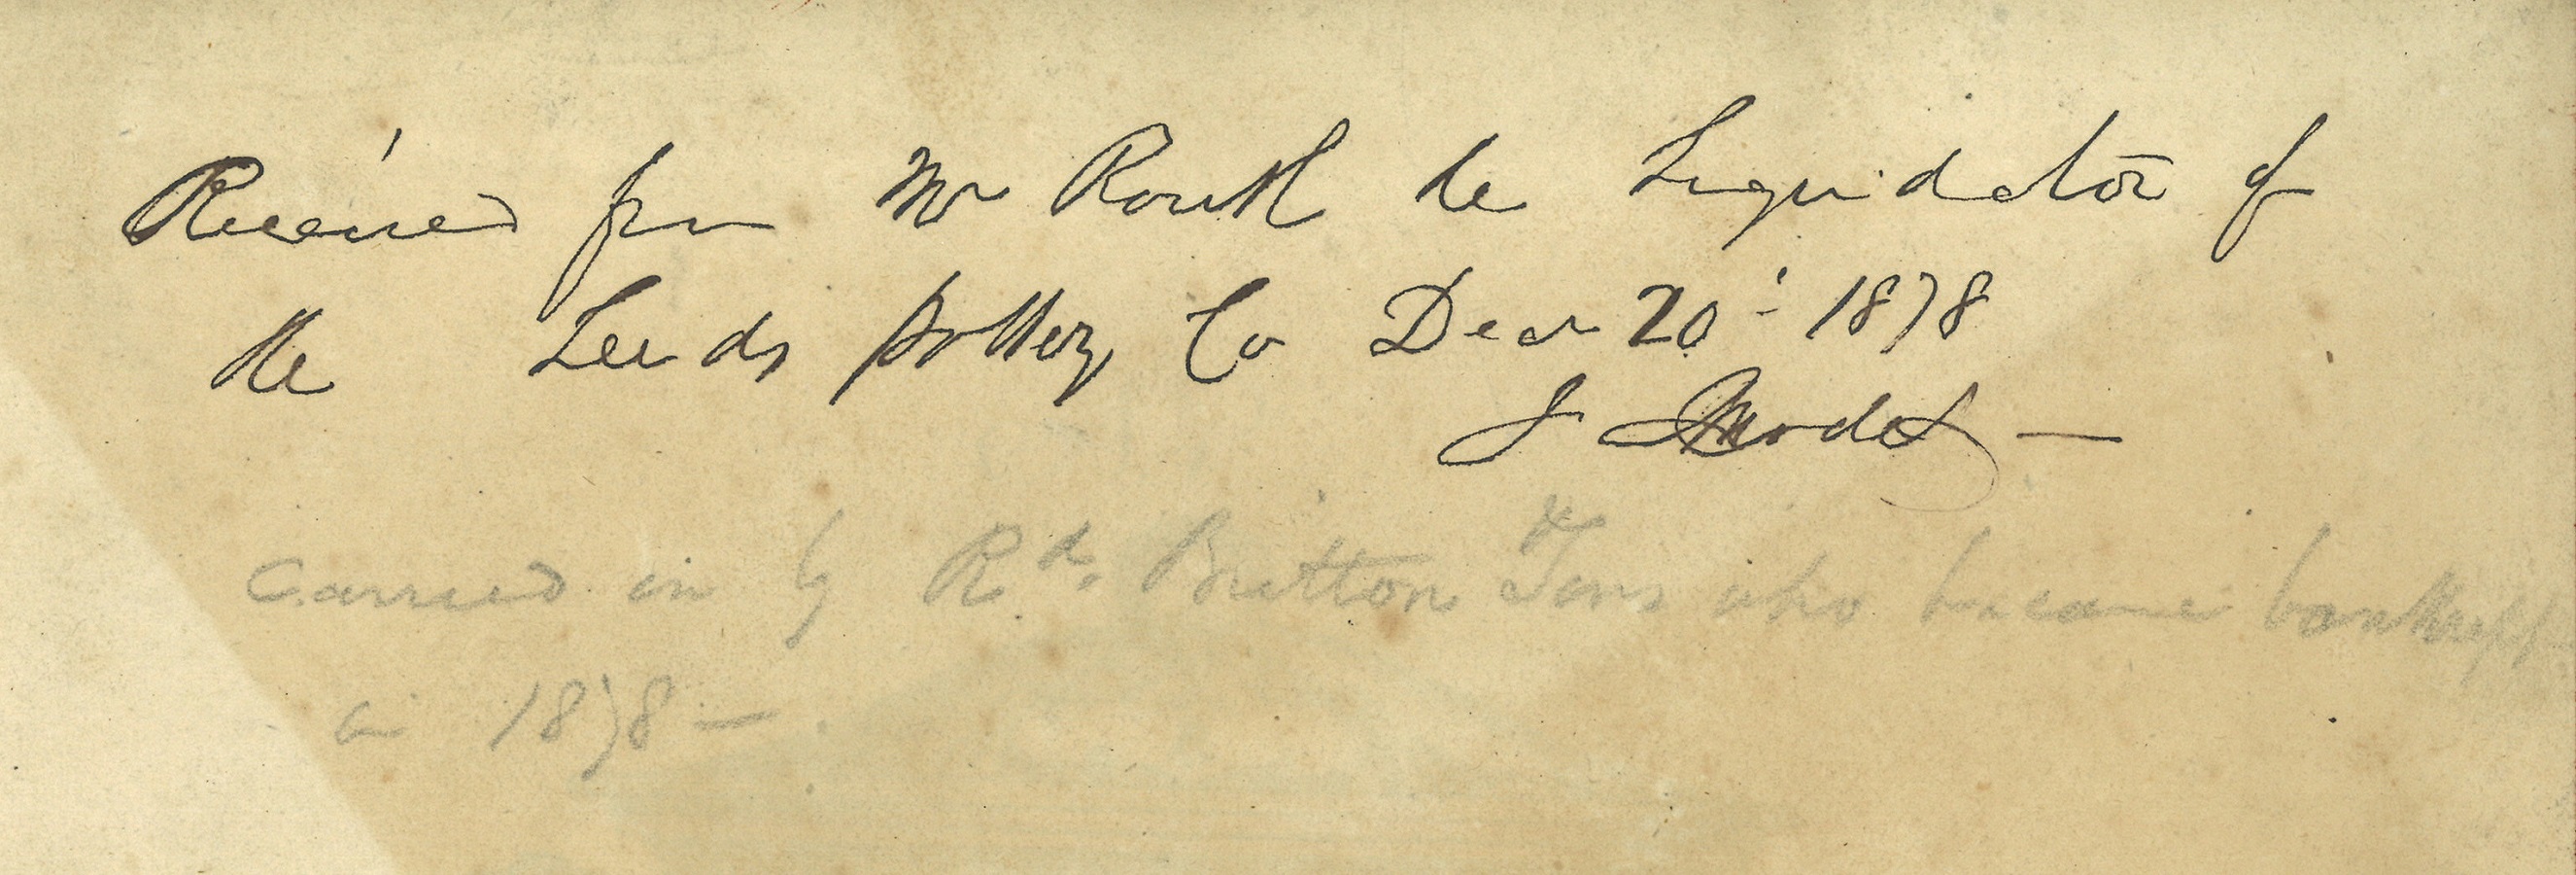 Received from Mr Routh the Liquidator of
the Leeds Pottery Co Decr 20th 1878
J
Carried on by Rd. Britton & Sons who became bankrupt
in 1878 —